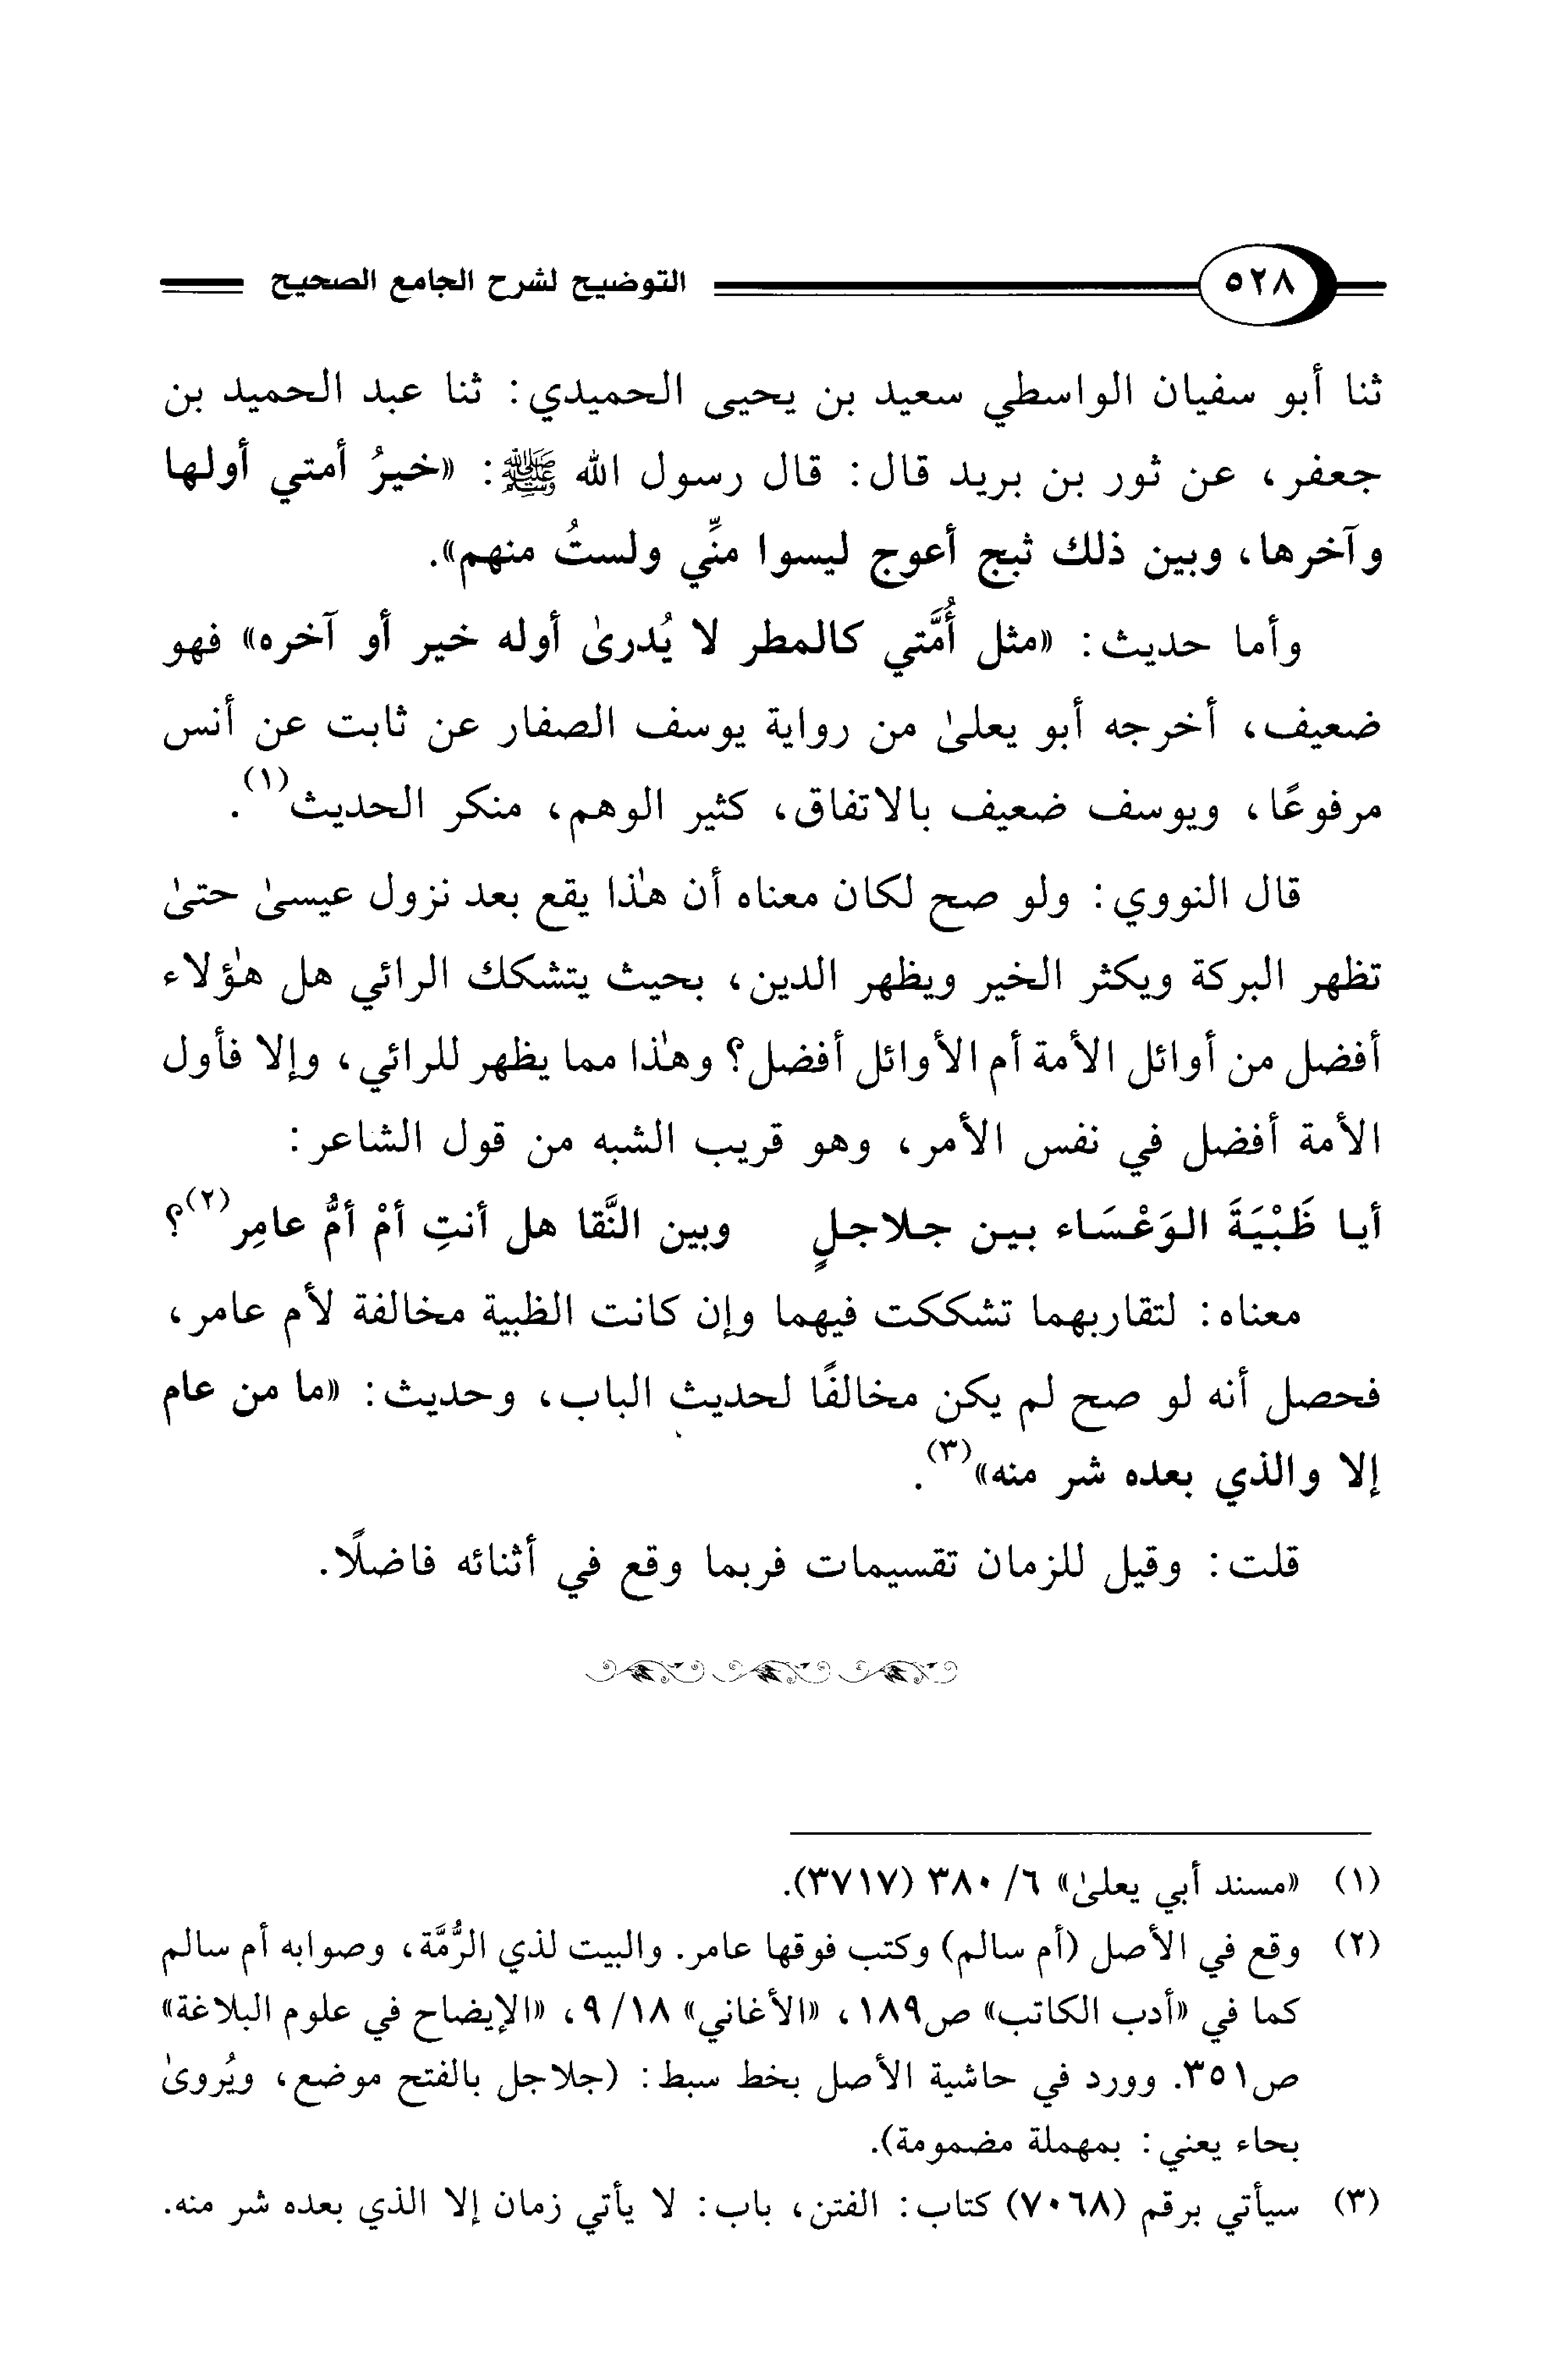 ٥٢٨ التوضيح لشرح الجامع الصحيح
ثنا أبو سفيان الواسطي سعيد بن يحيى الحميدي: ثنا عبد الحميد بن
جعفر، عن ثور بن بريد قال: قال رسول الله ﷺ: «خيرُ أمتي أولها
وآخرها، وبين ذلك ثبج أعوج ليسوا منِّي ولستُ منهم».
وأما حديث: «مثل أُمَّتي كالمطر لا يُدرىٰ أوله خير أو آخره» فهو
ضعيف، أخرجه أبو يعلىٰ من رواية يوسف الصفار عن ثابت عن أنس
مرفوعًا، ويوسف ضعيف بالاتفاق، كثير الوهم، منكر الحديث(١).
قال النووي: ولو صح لكان معناه أن هٰذا يقع بعد نزول عيسىٰ حتىٰ
تظهر البركة ويكثر الخير ويظهر الدين، بحيث يتشكك الرائي هل هٰؤلاء
أفضل من أوائل الأمة أم الأوائل أفضل؟ وهٰذا مما يظهر للرائي، وإلا فأول
الأمة أفضل في نفس الأمر، وهو قريب الشبه من قول الشاعر:
أيا ظَبْيَةَ الوَعْسَاء بين جلاجلٍ وبين النَّقا هل أنتِ أمْ أمُّ عامِر(٢)؟
معناه: لتقاربهما تشككت فيهما وإن كانت الظبية مخالفة لأم عامر،
فحصل أنه لو صح لم يكن مخالفًا لحديث الباب، وحديث: «ما من عام
إلا والذي بعده شر منه»(٣).
قلت: وقيل للزمان تقسيمات فربما وقع في أثنائه فاضلًا.
(١) «مسند أبي يعلىٰ» ٦/ ٣٨٠ (٣٧١٧).
(٢) وقع في الأصل (أم سالم) وكتب فوقها عامر. والبيت لذي الرُّمَّة، وصوابه أم سالم
كما في «أدب الكاتب» ص١٨٩، «الأغاني» ١٨/ ٩، «الإيضاح في علوم البلاغة»
ص٣٥١. وورد في حاشية الأصل بخط سبط: (جلاجل بالفتح موضع، ويُروىٰ
بحاء يعني: بمهملة مضمومة).
(٣) سيأتي برقم (٧٠٦٨) كتاب: الفتن، باب: لا يأتي زمان إلا الذي بعده شر منه.